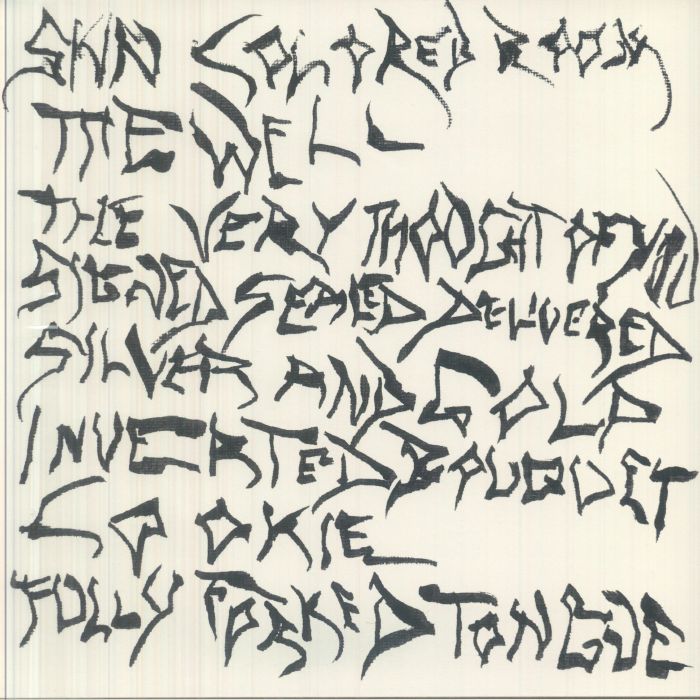 SKIN COLORED ROOM
THE WELL
THE VERY THOUGHT OF YOU
SIGNED SEALED DELIVERED
SILVER AND GOLD
INVERTED BOUQUET
COOKIE
FOLLY FORKED TONGUE